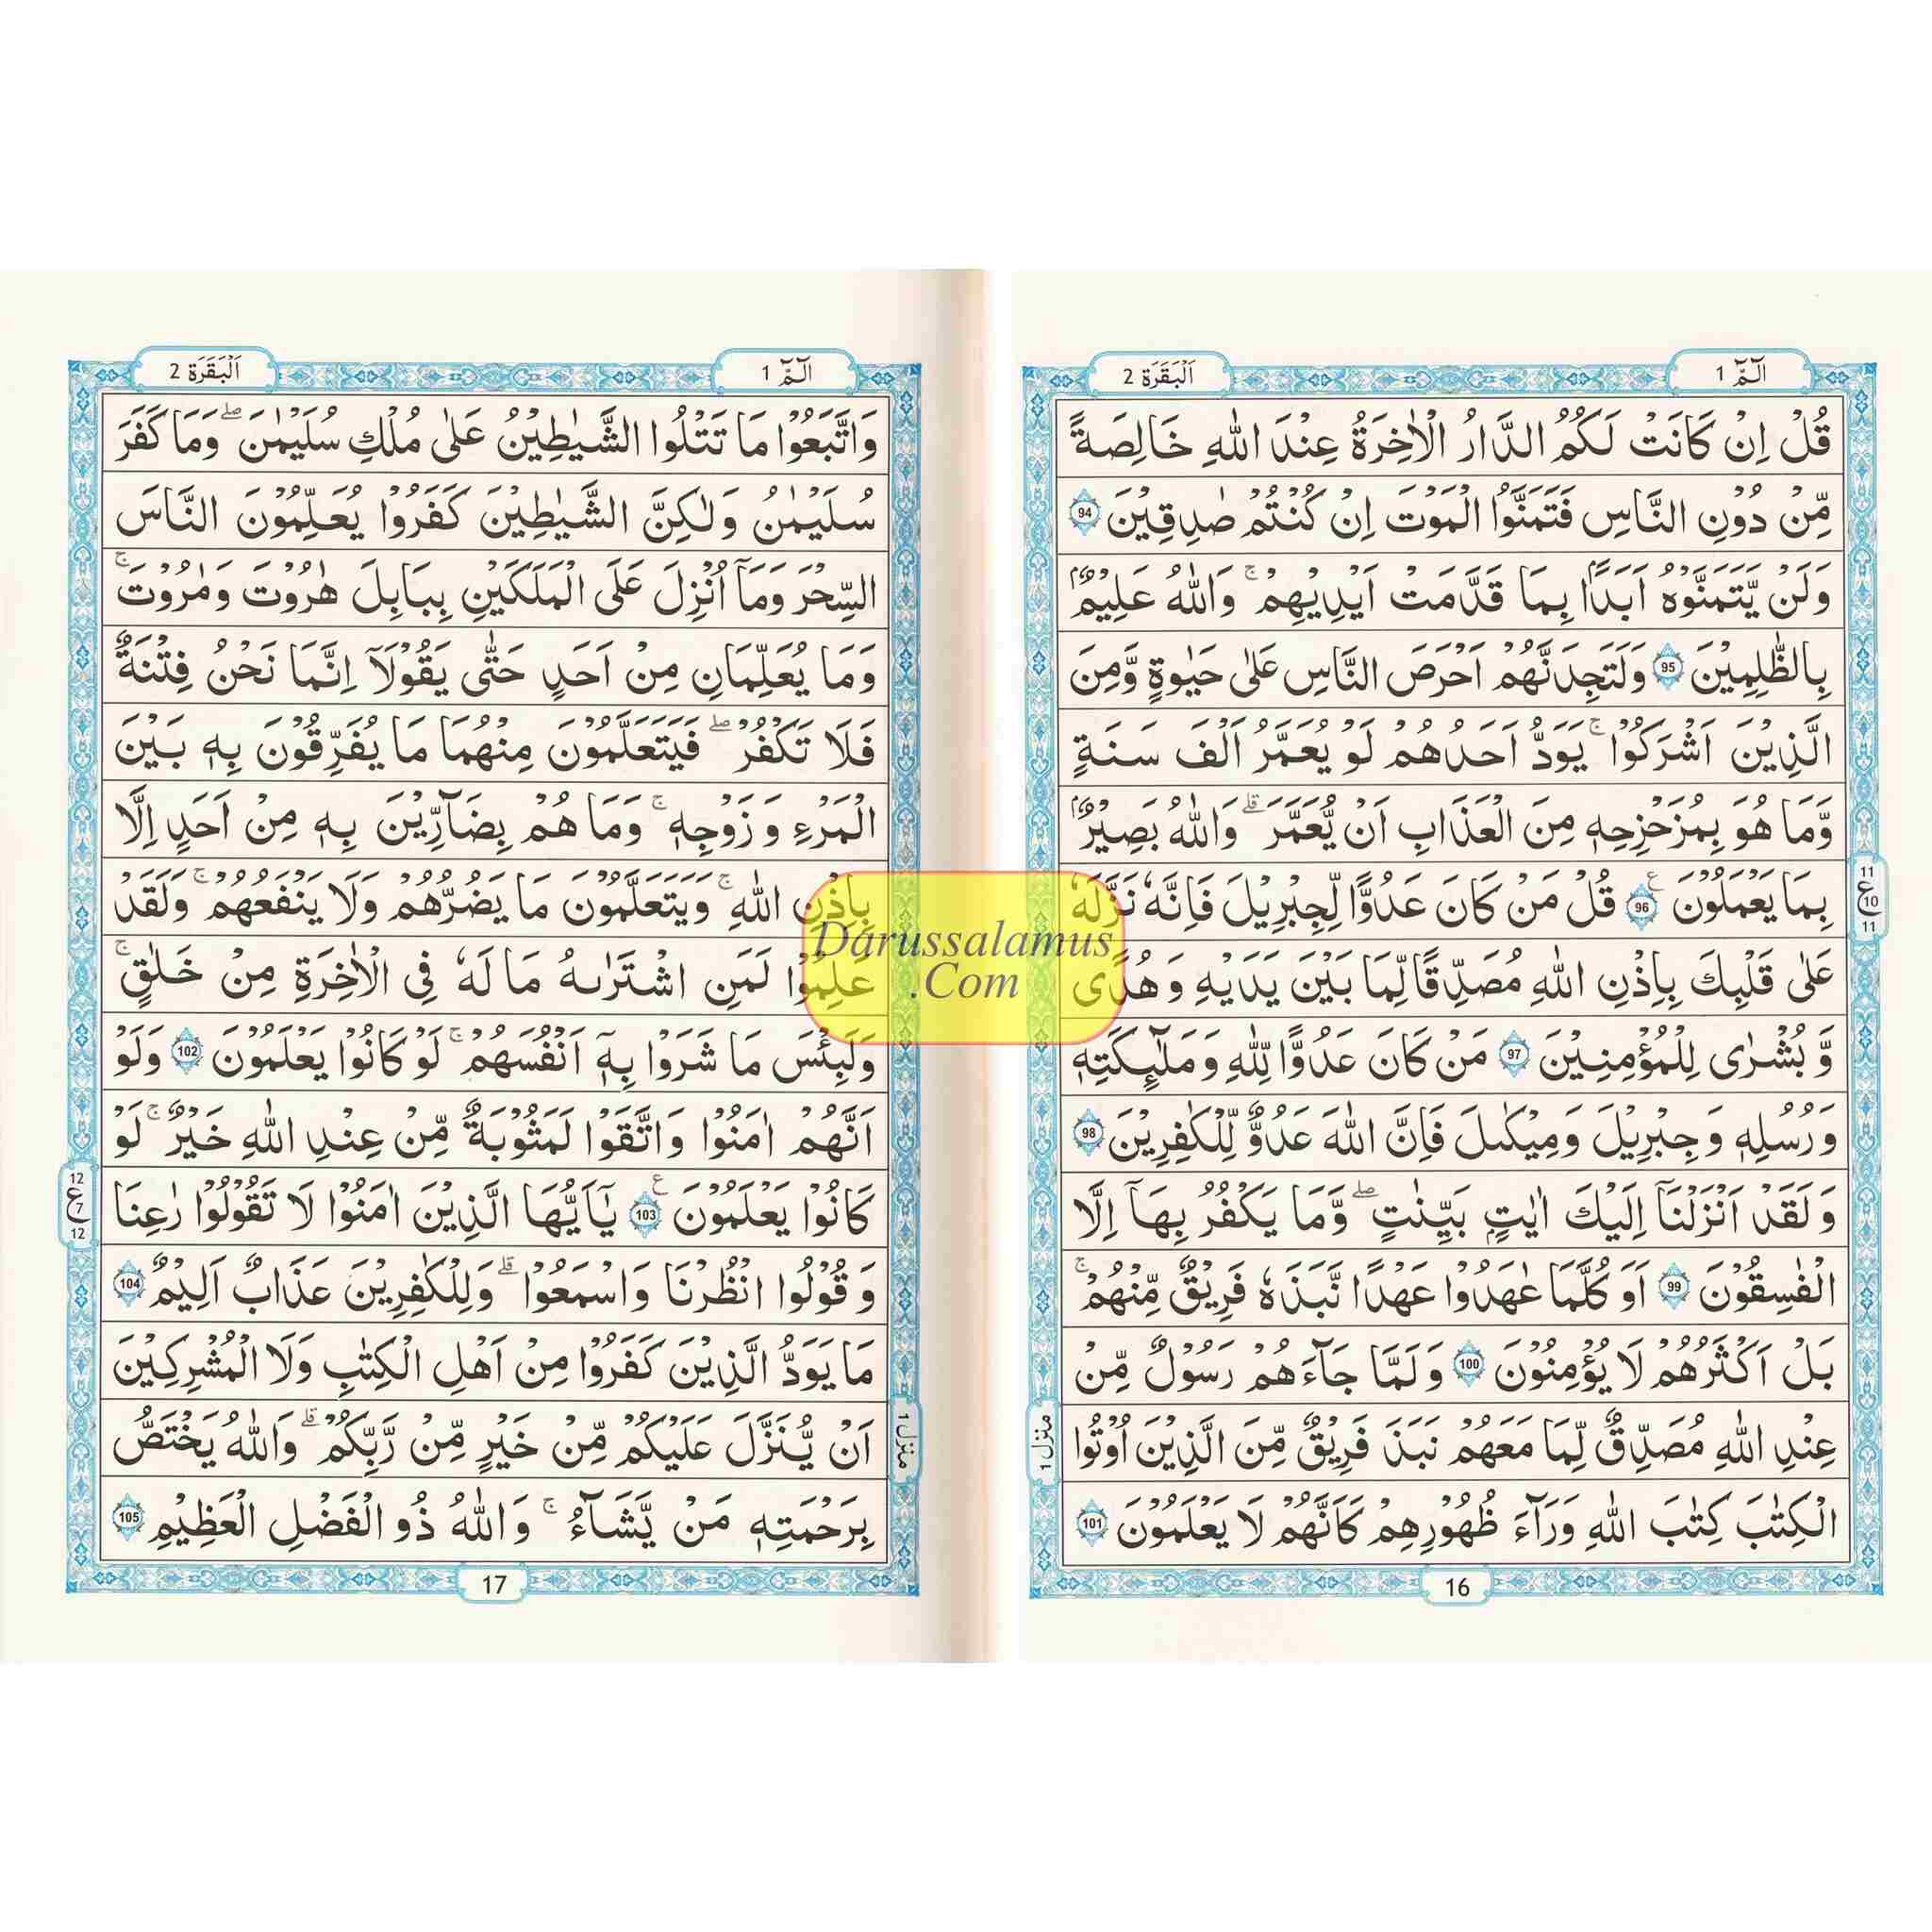 الٓمّٓ 1
اَلْبَقَرَة 2
قُلْ اِنْ كَانَتْ لَكُمُ الدَّارُ الْاٰخِرَةُ عِنْدَ اللّٰهِ خَالِصَةً
مِّنْ دُوْنِ النَّاسِ فَتَمَنَّوُا الْمَوْتَ اِنْ كُنْتُمْ صٰدِقِيْنَ 94
وَلَنْ يَّتَمَنَّوْهُ اَبَدًۢا بِمَا قَدَّمَتْ اَيْدِيْهِمْ ۚ وَاللّٰهُ عَلِيْمٌۢ
بِالظّٰلِمِيْنَ 95 وَلَتَجِدَنَّهُمْ اَحْرَصَ النَّاسِ عَلٰى حَيٰوةٍ وَّمِنَ
الَّذِيْنَ اَشْرَكُوْا ۚ يَوَدُّ اَحَدُهُمْ لَوْ يُعَمَّرُ اَلْفَ سَنَةٍ
وَّمَا هُوَ بِمُزَحْزِحِهٖ مِنَ الْعَذَابِ اَنْ يُّعَمَّرَ ۗ وَاللّٰهُ بَصِيْرٌۢ
بِمَا يَعْمَلُوْنَ 96 ع قُلْ مَنْ كَانَ عَدُوًّا لِّجِبْرِيْلَ فَاِنَّهٗ نَزَّلَهٗ
11 ع 10 11
عَلٰى قَلْبِكَ بِاِذْنِ اللّٰهِ مُصَدِّقًا لِّمَا بَيْنَ يَدَيْهِ وَهُدًى
وَّبُشْرٰى لِلْمُؤْمِنِيْنَ 97 مَنْ كَانَ عَدُوًّا لِّلّٰهِ وَمَلٰٓئِكَتِهٖ
وَرُسُلِهٖ وَجِبْرِيْلَ وَمِيْكٰىلَ فَاِنَّ اللّٰهَ عَدُوٌّ لِّلْكٰفِرِيْنَ 98
وَلَقَدْ اَنْزَلْنَآ اِلَيْكَ اٰيٰتٍۭ بَيِّنٰتٍ ۖ وَّمَا يَكْفُرُ بِهَآ اِلَّا
الْفٰسِقُوْنَ 99 اَوَكُلَّمَا عٰهَدُوْا عَهْدًا نَّبَذَهٗ فَرِيْقٌ مِّنْهُمْ ۚ
بَلْ اَكْثَرُهُمْ لَا يُؤْمِنُوْنَ 100 وَلَمَّا جَآءَهُمْ رَسُوْلٌ مِّنْ
عِنْدِ اللّٰهِ مُصَدِّقٌ لِّمَا مَعَهُمْ نَبَذَ فَرِيْقٌ مِّنَ الَّذِيْنَ اُوْتُوا
منزل 1
الْكِتٰبَ كِتٰبَ اللّٰهِ وَرَآءَ ظُهُوْرِهِمْ كَاَنَّهُمْ لَا يَعْلَمُوْنَ 101
16
الٓمّٓ 1
اَلْبَقَرَة 2
وَاتَّبَعُوْا مَا تَتْلُوا الشَّيٰطِيْنُ عَلٰى مُلْكِ سُلَيْمٰنَ ۖ وَمَا كَفَرَ
سُلَيْمٰنُ وَلٰكِنَّ الشَّيٰطِيْنَ كَفَرُوْا يُعَلِّمُوْنَ النَّاسَ
السِّحْرَ وَمَآ اُنْزِلَ عَلَى الْمَلَكَيْنِ بِبَابِلَ هٰرُوْتَ وَمٰرُوْتَ ۚ
وَمَا يُعَلِّمَانِ مِنْ اَحَدٍ حَتّٰى يَقُوْلَآ اِنَّمَا نَحْنُ فِتْنَةٌ
فَلَا تَكْفُرْ ۖ فَيَتَعَلَّمُوْنَ مِنْهُمَا مَا يُفَرِّقُوْنَ بِهٖ بَيْنَ
الْمَرْءِ وَزَوْجِهٖ ۚ وَمَا هُمْ بِضَآرِّيْنَ بِهٖ مِنْ اَحَدٍ اِلَّا
بِاِذْنِ اللّٰهِ ۚ وَيَتَعَلَّمُوْنَ مَا يَضُرُّهُمْ وَلَا يَنْفَعُهُمْ ۚ وَلَقَدْ
عَلِمُوْا لَمَنِ اشْتَرٰىهُ مَا لَهٗ فِى الْاٰخِرَةِ مِنْ خَلَاقٍ ۚ
وَلَبِئْسَ مَا شَرَوْا بِهٖٓ اَنْفُسَهُمْ ۚ لَوْ كَانُوْا يَعْلَمُوْنَ 102 وَلَوْ
اَنَّهُمْ اٰمَنُوْا وَاتَّقَوْا لَمَثُوْبَةٌ مِّنْ عِنْدِ اللّٰهِ خَيْرٌ ۚ لَوْ
كَانُوْا يَعْلَمُوْنَ 103 ع يٰٓاَيُّهَا الَّذِيْنَ اٰمَنُوْا لَا تَقُوْلُوْا رَاعِنَا
12 ع 7 12
وَقُوْلُوا انْظُرْنَا وَاسْمَعُوْا ۗ وَلِلْكٰفِرِيْنَ عَذَابٌ اَلِيْمٌ 104
مَا يَوَدُّ الَّذِيْنَ كَفَرُوْا مِنْ اَهْلِ الْكِتٰبِ وَلَا الْمُشْرِكِيْنَ
اَنْ يُّنَزَّلَ عَلَيْكُمْ مِّنْ خَيْرٍ مِّنْ رَّبِّكُمْ ۗ وَاللّٰهُ يَخْتَصُّ
منزل 1
بِرَحْمَتِهٖ مَنْ يَّشَآءُ ۚ وَاللّٰهُ ذُو الْفَضْلِ الْعَظِيْمِ 105
17
Darussalamus
.Com